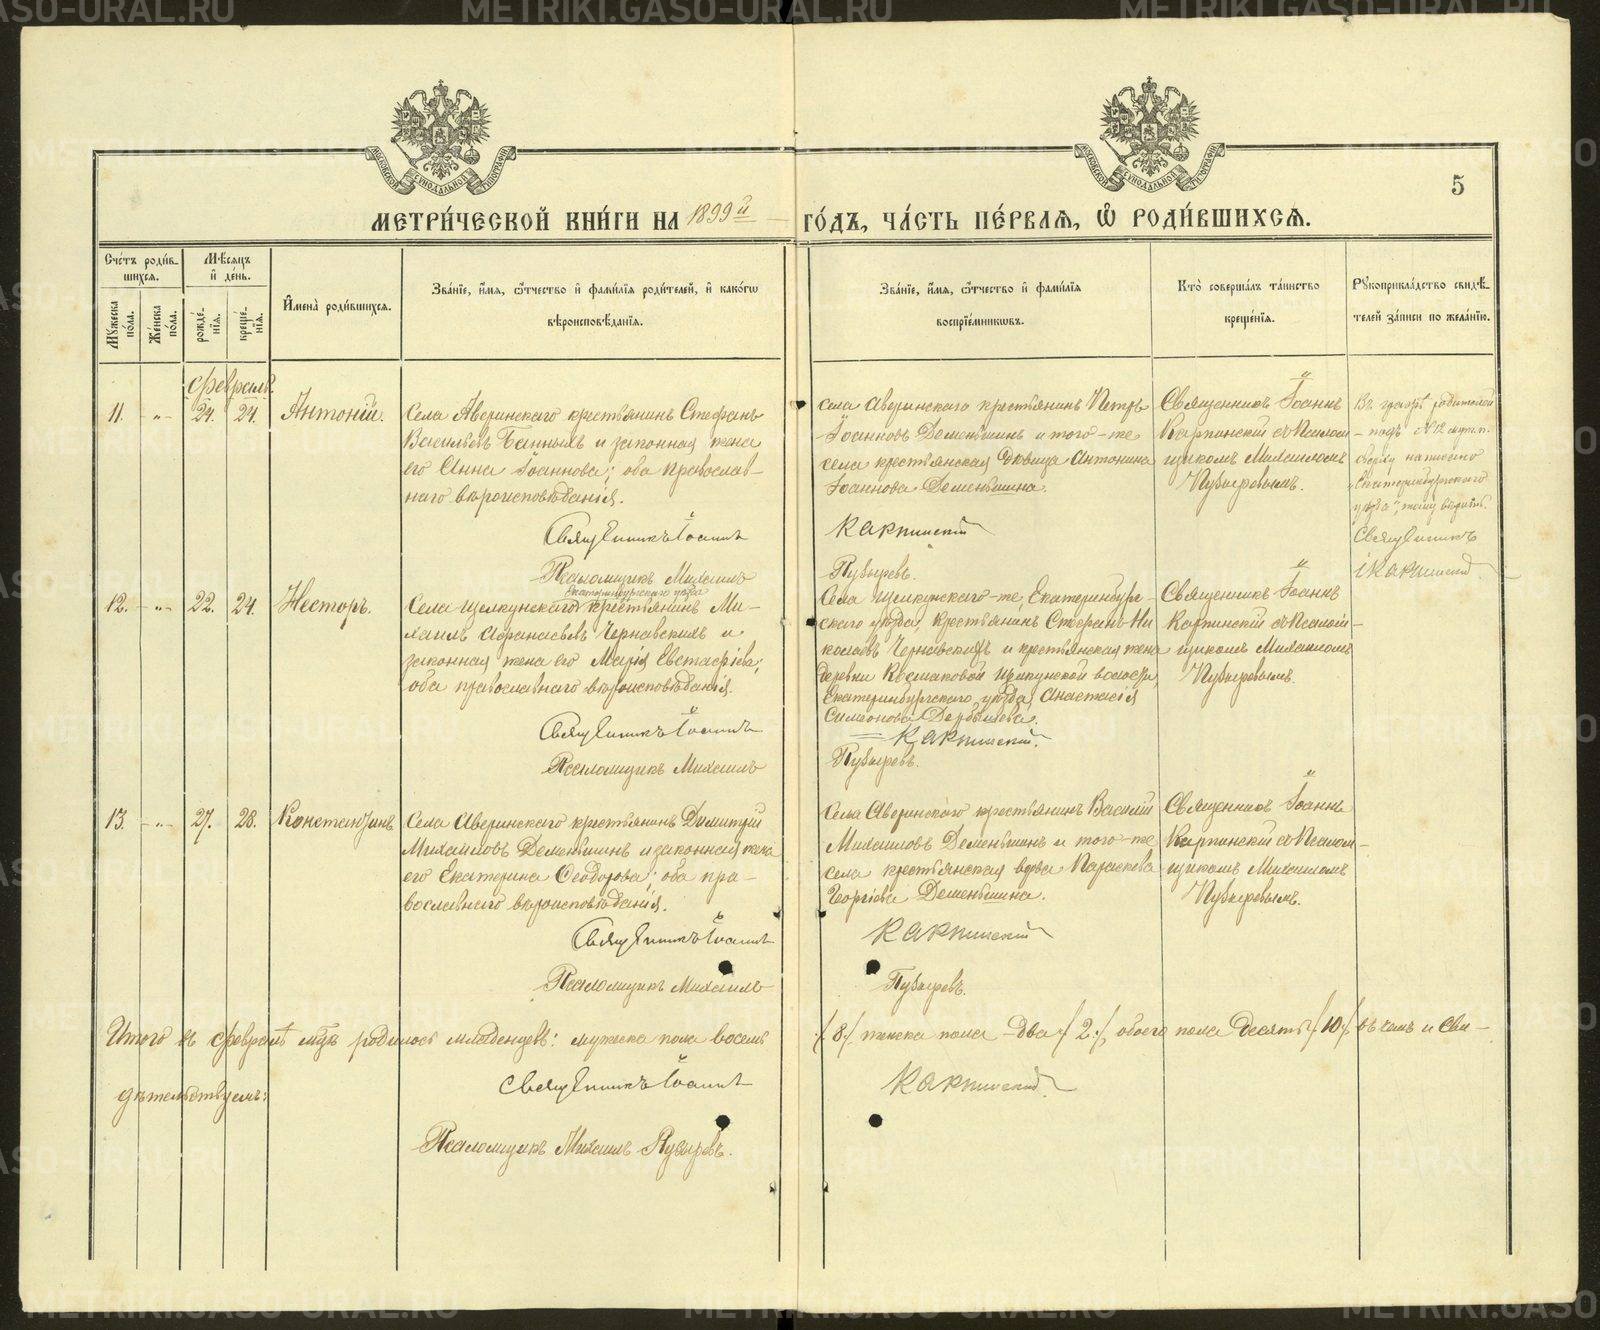 МЕТРИ́ЧЕСКОЙ КНИ́ГИ НА 1899 й ГО́ДЪ, ЧА́СТЬ ПЕ́РВАЯ, Ѽ РОДИ́ВШИХСЯ.
5
МОСКОВСКОЙ СѴНОДАЛЬНОЙ ТИПОГРАФІИ
МОСКОВСКОЙ СѴНОДАЛЬНОЙ ТИПОГРАФІИ
Сче́тъ роди́в-
шихся.
Мѣ́сяцъ
и҆ де́нь.
Мꙋ́жеска по́ла.
Же́нска по́ла.
рожде́-
нїя.
креще́-
нїя.
И҆мена̀ роди́вшихся.
Зва́нїе, и҆́мя, ѻ҆́тчество и҆ фами́лїя роди́телей, и҆ како́гѡ
вѣроисповѣ́данїя.
Зва́нїе, и҆́мя, ѻ҆́тчество и҆ фами́лїя
воспрїе́мникѡвъ.
Кто̀ соверша́лъ та́инство
креще́нїя.
Рꙋкоприкла́дство свидѣ́-
телей за́писи по жела́нїю.
Февраль.
11. -„- 24. 24. Антоній.
Села Аверинскаго крестьянинъ Стефанъ
Васильевъ Банныхъ и законная жена
его Анна Іоаннова; оба православ-
наго вѣроисповѣданія.
Священникъ Іоаннъ
Псаломщикъ Михаилъ
села Аверинскаго крестьянинъ Петръ
Іоанновъ Деменьшинъ и того-же
села крестьянская дѣвица Антонина
Іоаннова Деменьшина.
Карпинскій
Пузыревъ.
Священникъ Іоаннъ
Карпинскій съ Псалом-
щикомъ Михаиломъ
Пузыревымъ.
Въ графѣ родителей
-подъ № 12 акт. п.
сверху написано
„Екатеринбургскаго
уѣзда", тому вѣрить.
Священникъ
І Карпинскій
12. -„- 22. 24. Несторъ.
Екатеринбургскаго уѣзда
Села Щелкунскаго крестьянинъ Ми-
хаилъ Афанасьевъ Чернавскихъ и
законная жена его Марія Евстафіева;
оба православнаго вѣроисповѣданія.
Священникъ Іоаннъ
Псаломщикъ Михаилъ
Села Щелкунскаго-же, Екатеринбург-
скаго уѣзда, крестьянинъ Стефанъ Ни
колаевъ Чернавскихъ и крестьянская жена
деревни Космаковой Щелкунской волости,
Екатеринбургскаго уѣзда, Анастасія
Симеонова Дербышева.
Карпинскій.
Пузыревъ.
Священникъ Іоаннъ
Карпинскій съ Псалом-
щикомъ Михаиломъ
Пузыревымъ.
13. -„- 27. 28. Константинъ
Села Аверинскаго крестьянинъ Димитрій
Михаиловъ Деменьшинъ и законная жена
его Екатерина Ѳеодорова; оба пра-
вославнаго вѣроисповѣданія.
Священникъ Іоаннъ
Псаломщикъ Михаилъ
Села Аверинскаго крестьянинъ Василій
Михаиловъ Деменьшинъ и того-же
села крестьянская вдова Параскева
Георгіева Деменьшина.
Карпинскій
Пузыревъ.
Священникъ Іоаннъ
Карпинскій съ Псалом-
щикомъ Михаиломъ
Пузыревымъ.
Итого въ февралѣ мцѣ родилось младенцевъ: мужеска пола восемь /8/, женска пола два /2/, обоего пола десять /10/ въ чемъ и сви-
дѣтельствуемъ:
Священникъ Іоаннъ Карпинскій.
Псаломщикъ Михаилъ Пузыревъ.
METRIKI.GASO-URAL.RU